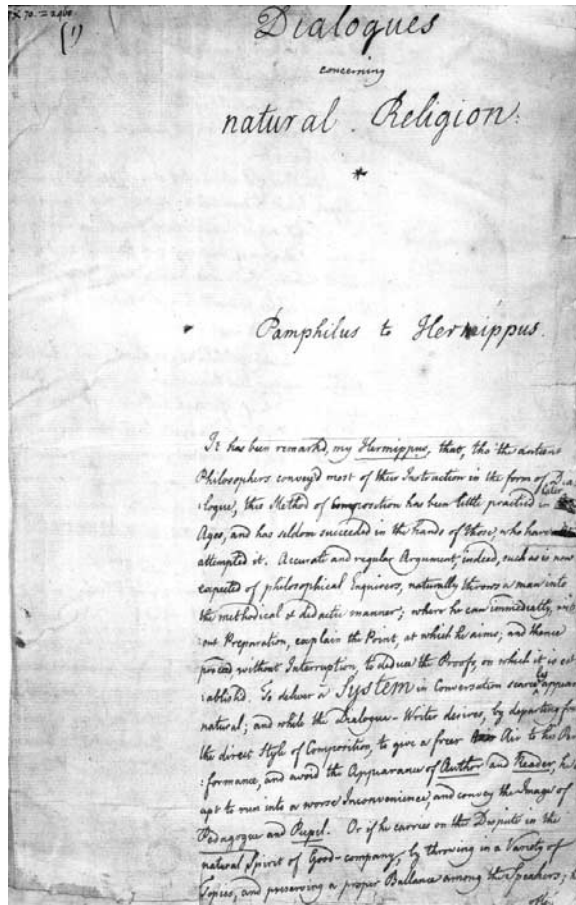 (1)
Dialogues
concerning
natural Religion.
*
Pamphilus to Hermippus.
It has been remarkd, my Hermippus, that, tho' the antient
Philosophers convey'd most of their Instruction in the form of Dia
:logue, this Method of Composition has been little practised in later
Ages, and has seldom succeeded in the hands of those, who have
attempted it. Accurate and regular Argument, indeed, such as is now
expected of philosophical Enquirers, naturally throws a man into
the methodical & didactic manner; where he can immediatly, with
:out Preparation, explain the Point, at which he aims; and thence
proceed, without Interruption, to deduce the Proofs, on which it is est
:ablishd. To deliver a System in Conversation scarce appears
natural; and while the Dialogue-Writer desires, by departing from
the direct Style of Composition, to give a freer Air to his Per
:formance, and avoid the Appearance of Author and Reader, he is
apt to run into a worse Inconvenience, and convey the Image of
Pedagogue and Pupil. Or if he carries on the Dispute in the
natural Spirit of Good-company, by throwing in a Variety of
Topics, and preserving a proper Ballance among the Speakers; he